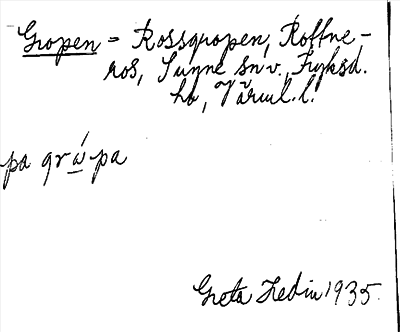 Gropen = Rossgropen, Roffne-
ros, Sunne sn o., Fryksd.
hd, Värml. l.
pa grú̲pa
Greta Hedin 1935.